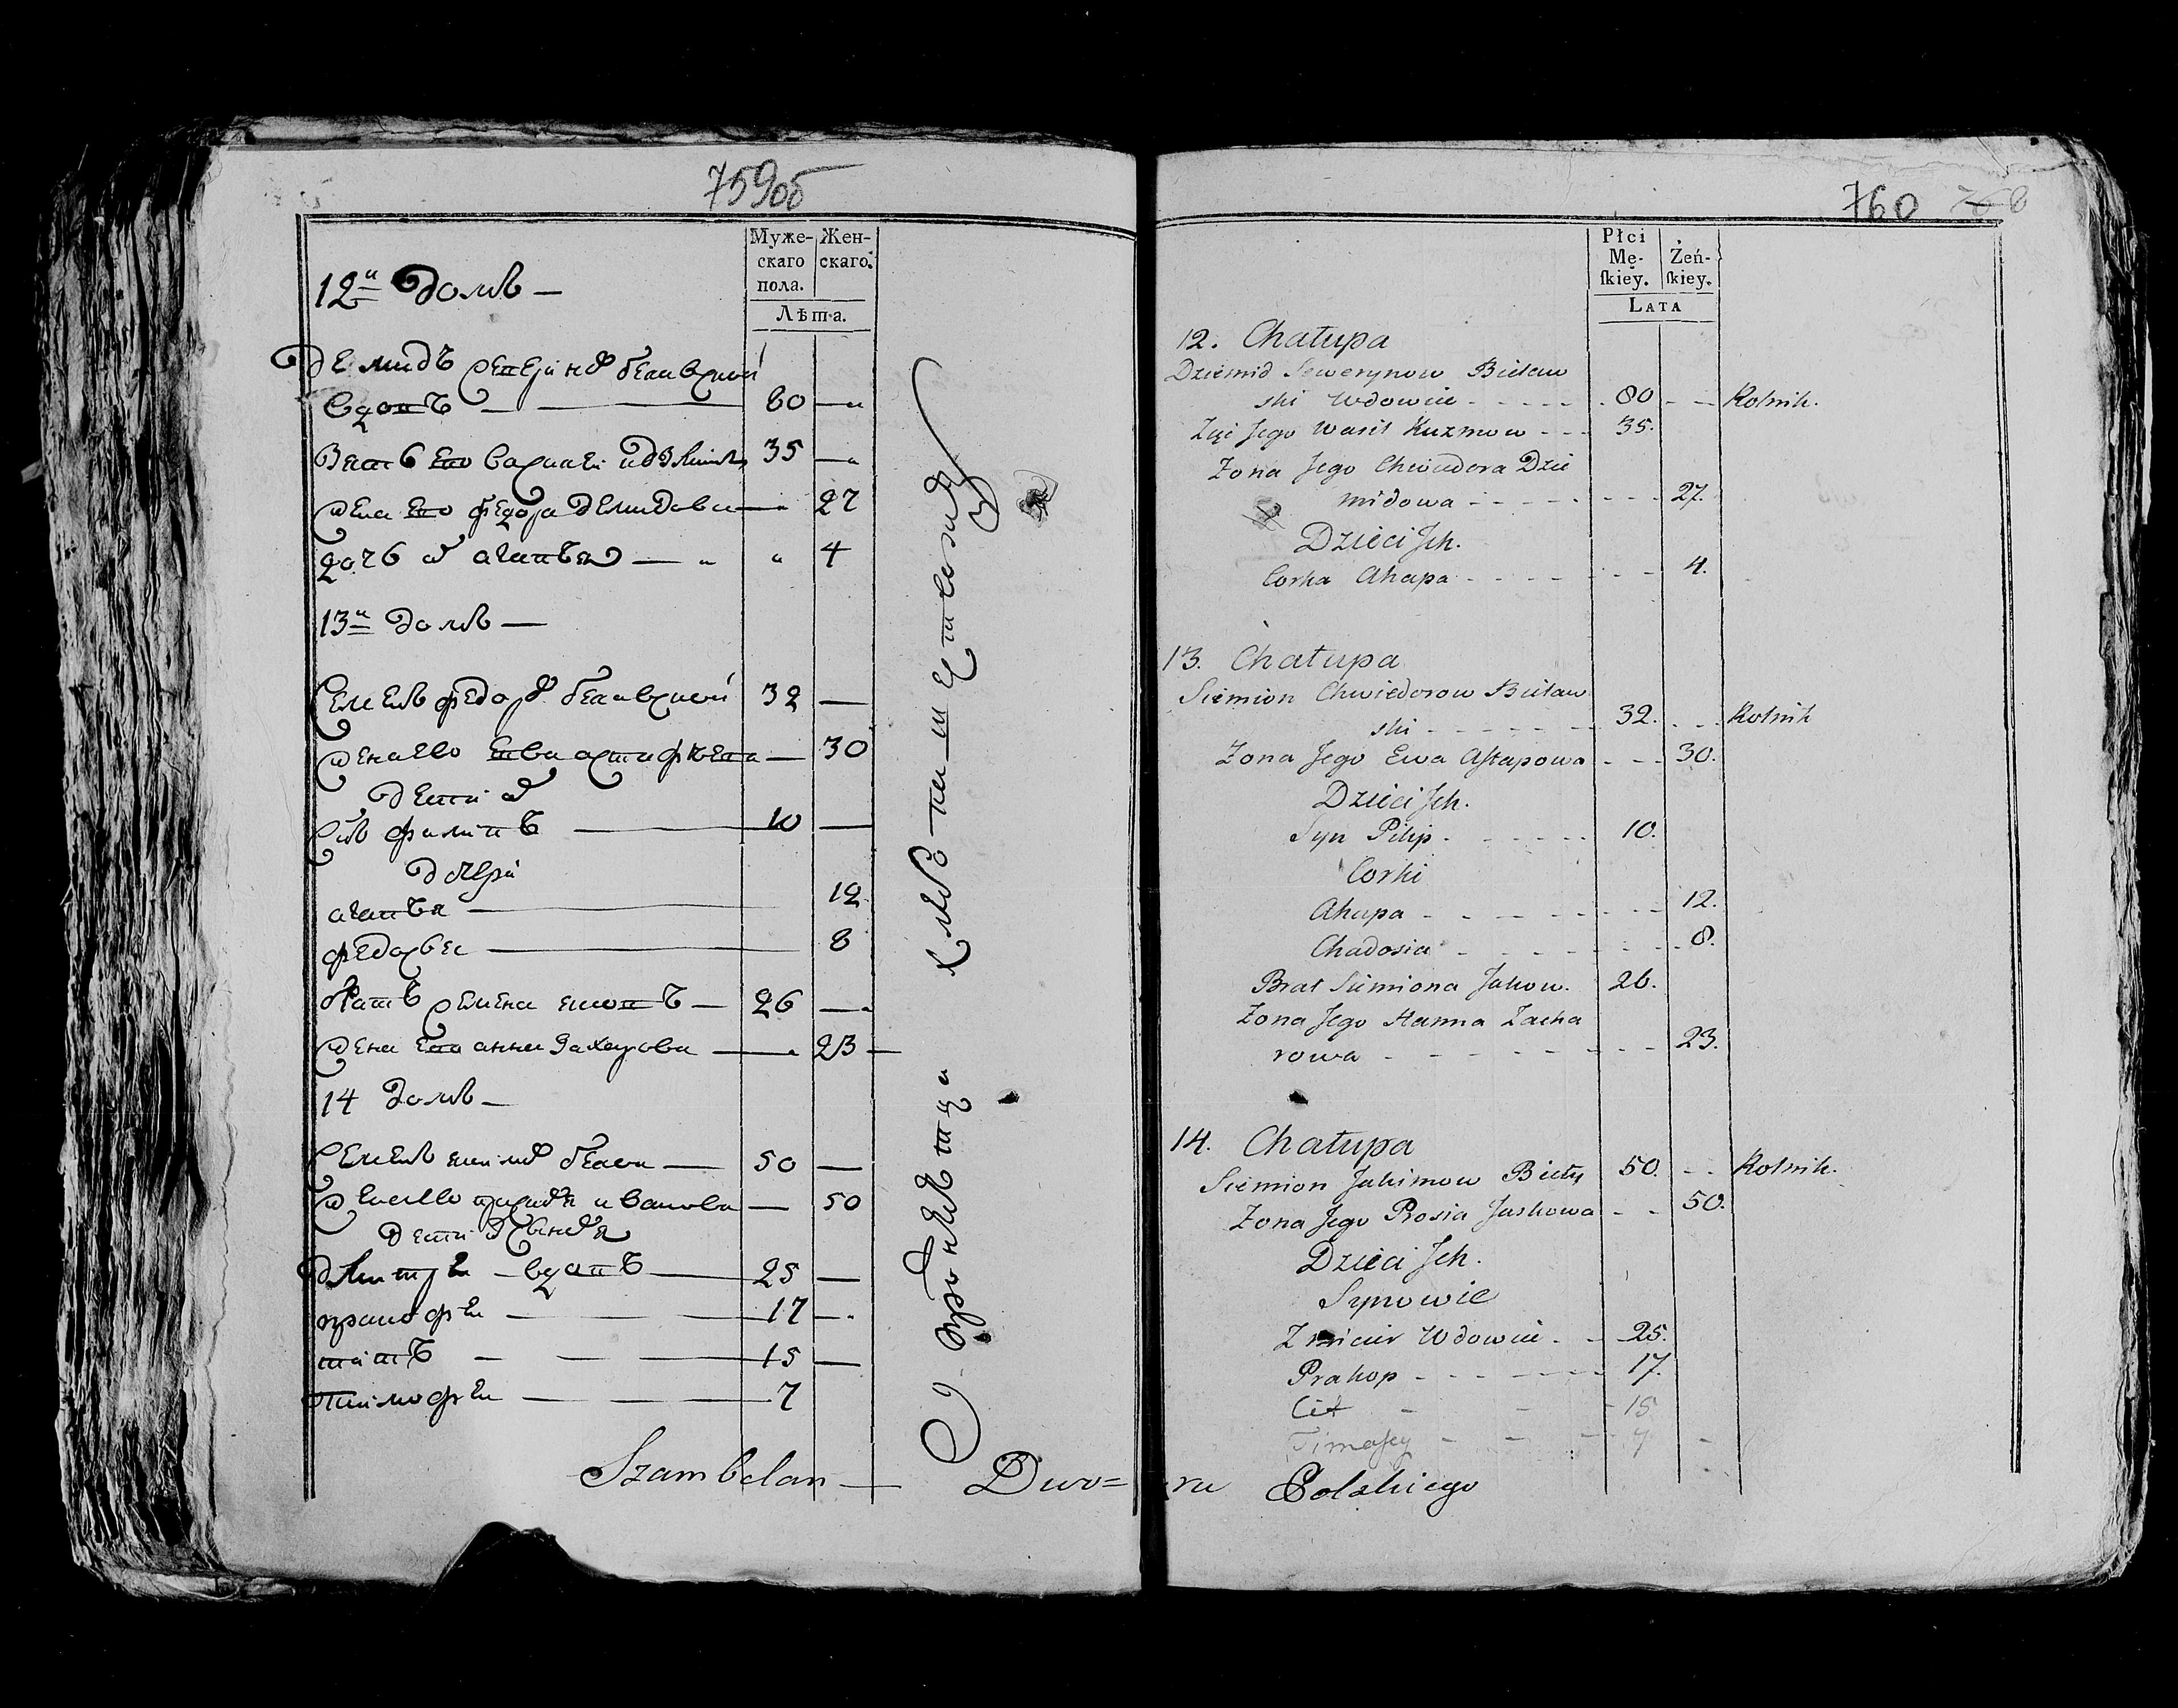 759об
Муже-
скаго
пола.
Жен-
скаго.
Лѣта.
12й домъ —
демидъ
вдовъ — 80 —
Зять его василеи 35 —
жена его федора демидова — 27
дочь их агапья — 4
13й домъ —
Семенъ федоров белавский 32 —
жена ево ева астафьева — 30
дети их
Сынъ филипъ — 10 —
дочери
агапья — 12
федосья — 8
братъ семена яковъ — 26 —
жена его анна захарова — 23 —
14 домъ —
Семенъ якимов белои — 50 —
жена ево иванова — 50
дети
дмитреи — вдовъ — 25 —
прокофеи — 17 —
титъ — 15 —
тимофеи — 7
Szambelan Dwo=
760
Płci
Mę-
ſkiey.
Żeń-
ſkiey.
LATA
12. Chałupa
Dziemid Sewerynow Bieław
ski Wdowiec - - - - 80 - - Rolnik.
Zięć Jego Wasil Kuzmow - - - 35.
Zona Jego Chwiedora Dzie
midowa - - - - 27.
Dzieci Jch.
Corka Ahapa - - - - 4.
13. Chałupa
Siemion Chwiedorow Bieław
ski - - - - 32. - - Rolnik
Zona Jego Ewa Aſtapowa - - - 30.
Dzieci Jch.
Syn Pilip - - - - 10.
Corki
Ahapa - - - - 12.
Chadosia - - - - 8.
Brat Siemiona Jakow. 26.
Zona Jego Hanna Zacha
rowa - - - - 23.
14. Chałupa
Siemion Jakimow Biały 50. - - Rolnik.
Zona Jego Prosia Jaskowa - - 50.
Dzieci Jch.
Synowie
Zmicier Wdowiec - - 25.
Prakop - - - - 17.
Cit - - - 15
Timafey - - - 7 -
ru Polskiego